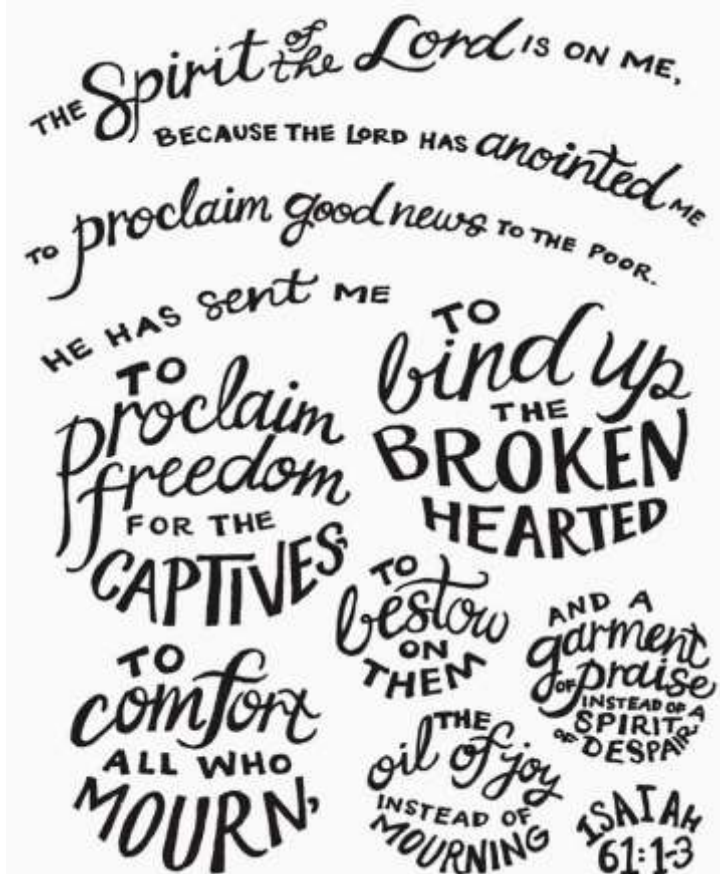 THE Spirit of the Lord IS ON ME,
BECAUSE THE LORD HAS anointed ME
TO proclaim good news TO THE POOR.
HE HAS sent ME
TO
bind up
THE
BROKEN
HEARTED
TO
proclaim
freedom
FOR THE
CAPTIVES,
TO
comfort
ALL WHO
MOURN,
TO
bestow
ON
THEM
THE
oil of joy
INSTEAD OF
MOURNING
AND A
garment
OF praise
INSTEAD OF A
SPIRIT
OF DESPAIR.
ISAIAH
61:1-3